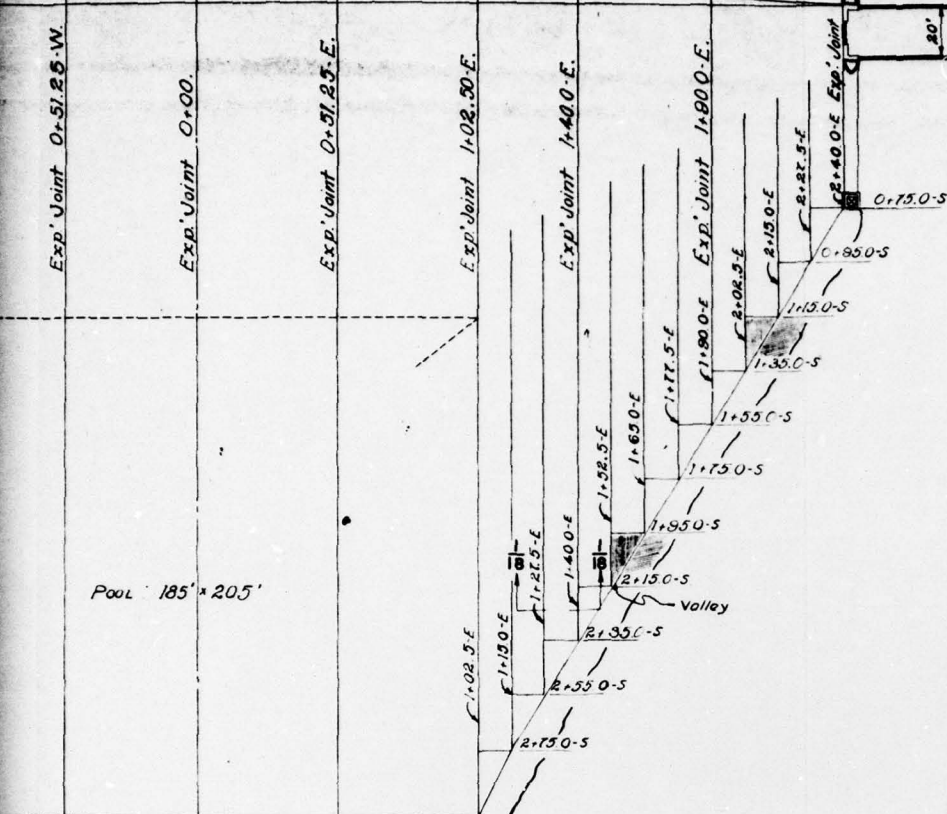 Exp' Joint 0+51.25-W.
Exp' Joint 0+00.
Exp' Joint 0+51.25-E.
Exp' Joint 1+02.50-E.
Exp' Joint 1+40.0-E.
Exp' Joint 1+90.0-E.
2+40.0-E Exp' Joint
20'
2+27.5-E
2+15.0-E
2+02.5-E
1+90.0-E
1+77.5-E
1+65.0-E
1+52.5-E
1+40.0-E
1+27.5-E
1+15.0-E
1+02.5-E
0+75.0-S
0+95.0-S
1+15.0-S
1+35.0-S
1+55.0-S
1+75.0-S
1+95.0-S
2+15.0-S
Valley
2+35.0-S
2+55.0-S
2+75.0-S
1/18
1/18
POOL 185' x 205'